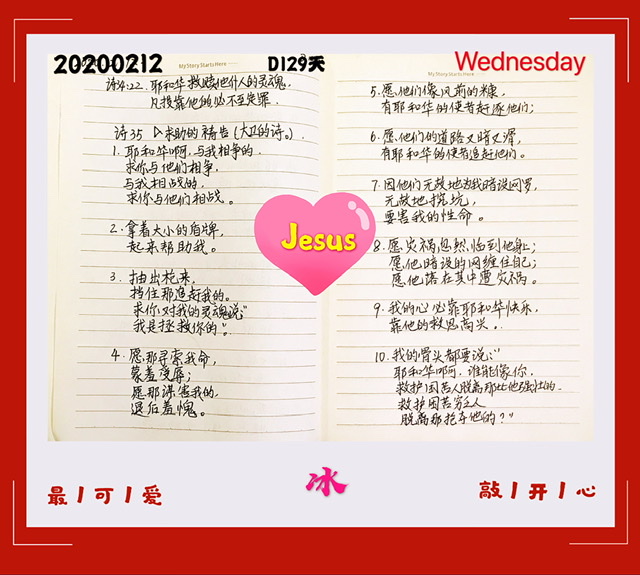 20200212
D129天
Wednesday
My Story Starts Here
诗4:22. 耶和华救赎他仆人的灵魂,
凡投靠他的必不至定罪.
诗35 ▷求助的祷告(大卫的诗。)
1. 耶和华啊,与我相争的.
求你与他们相争,
与我相战的.
求你与他们相战。
2. 拿着大小的盾牌,
起来帮助我。
3. 抽出枪来,
挡住那追赶我的。
求你对我的灵魂说:"
我是拯救你的"。
4. 愿那寻索我命,
蒙羞受辱;
愿那谋害我的,
退后羞愧。
My Story Starts Here
5. 愿他们像风前的糠,
有耶和华的使者赶逐他们;
6. 愿他们的道路又暗又滑,
有耶和华的使者追赶他们。
7. 因他们无故地为我暗设网罗,
无故地挖坑,
要害我的性命。
8. 愿灾祸忽然临到他身上;
愿他暗设的网缠住自己;
愿他落在其中遭灾祸。
9. 我的心必靠耶和华快乐,
靠他的救恩高兴.
10. 我的骨头都要说:"
耶和华啊. 谁能像你.
救护困苦人脱离那比他强壮的.
救护困苦穷乏人
脱离那抢夺他的?"
Jesus
最|可|爱
冰
敲|开|心